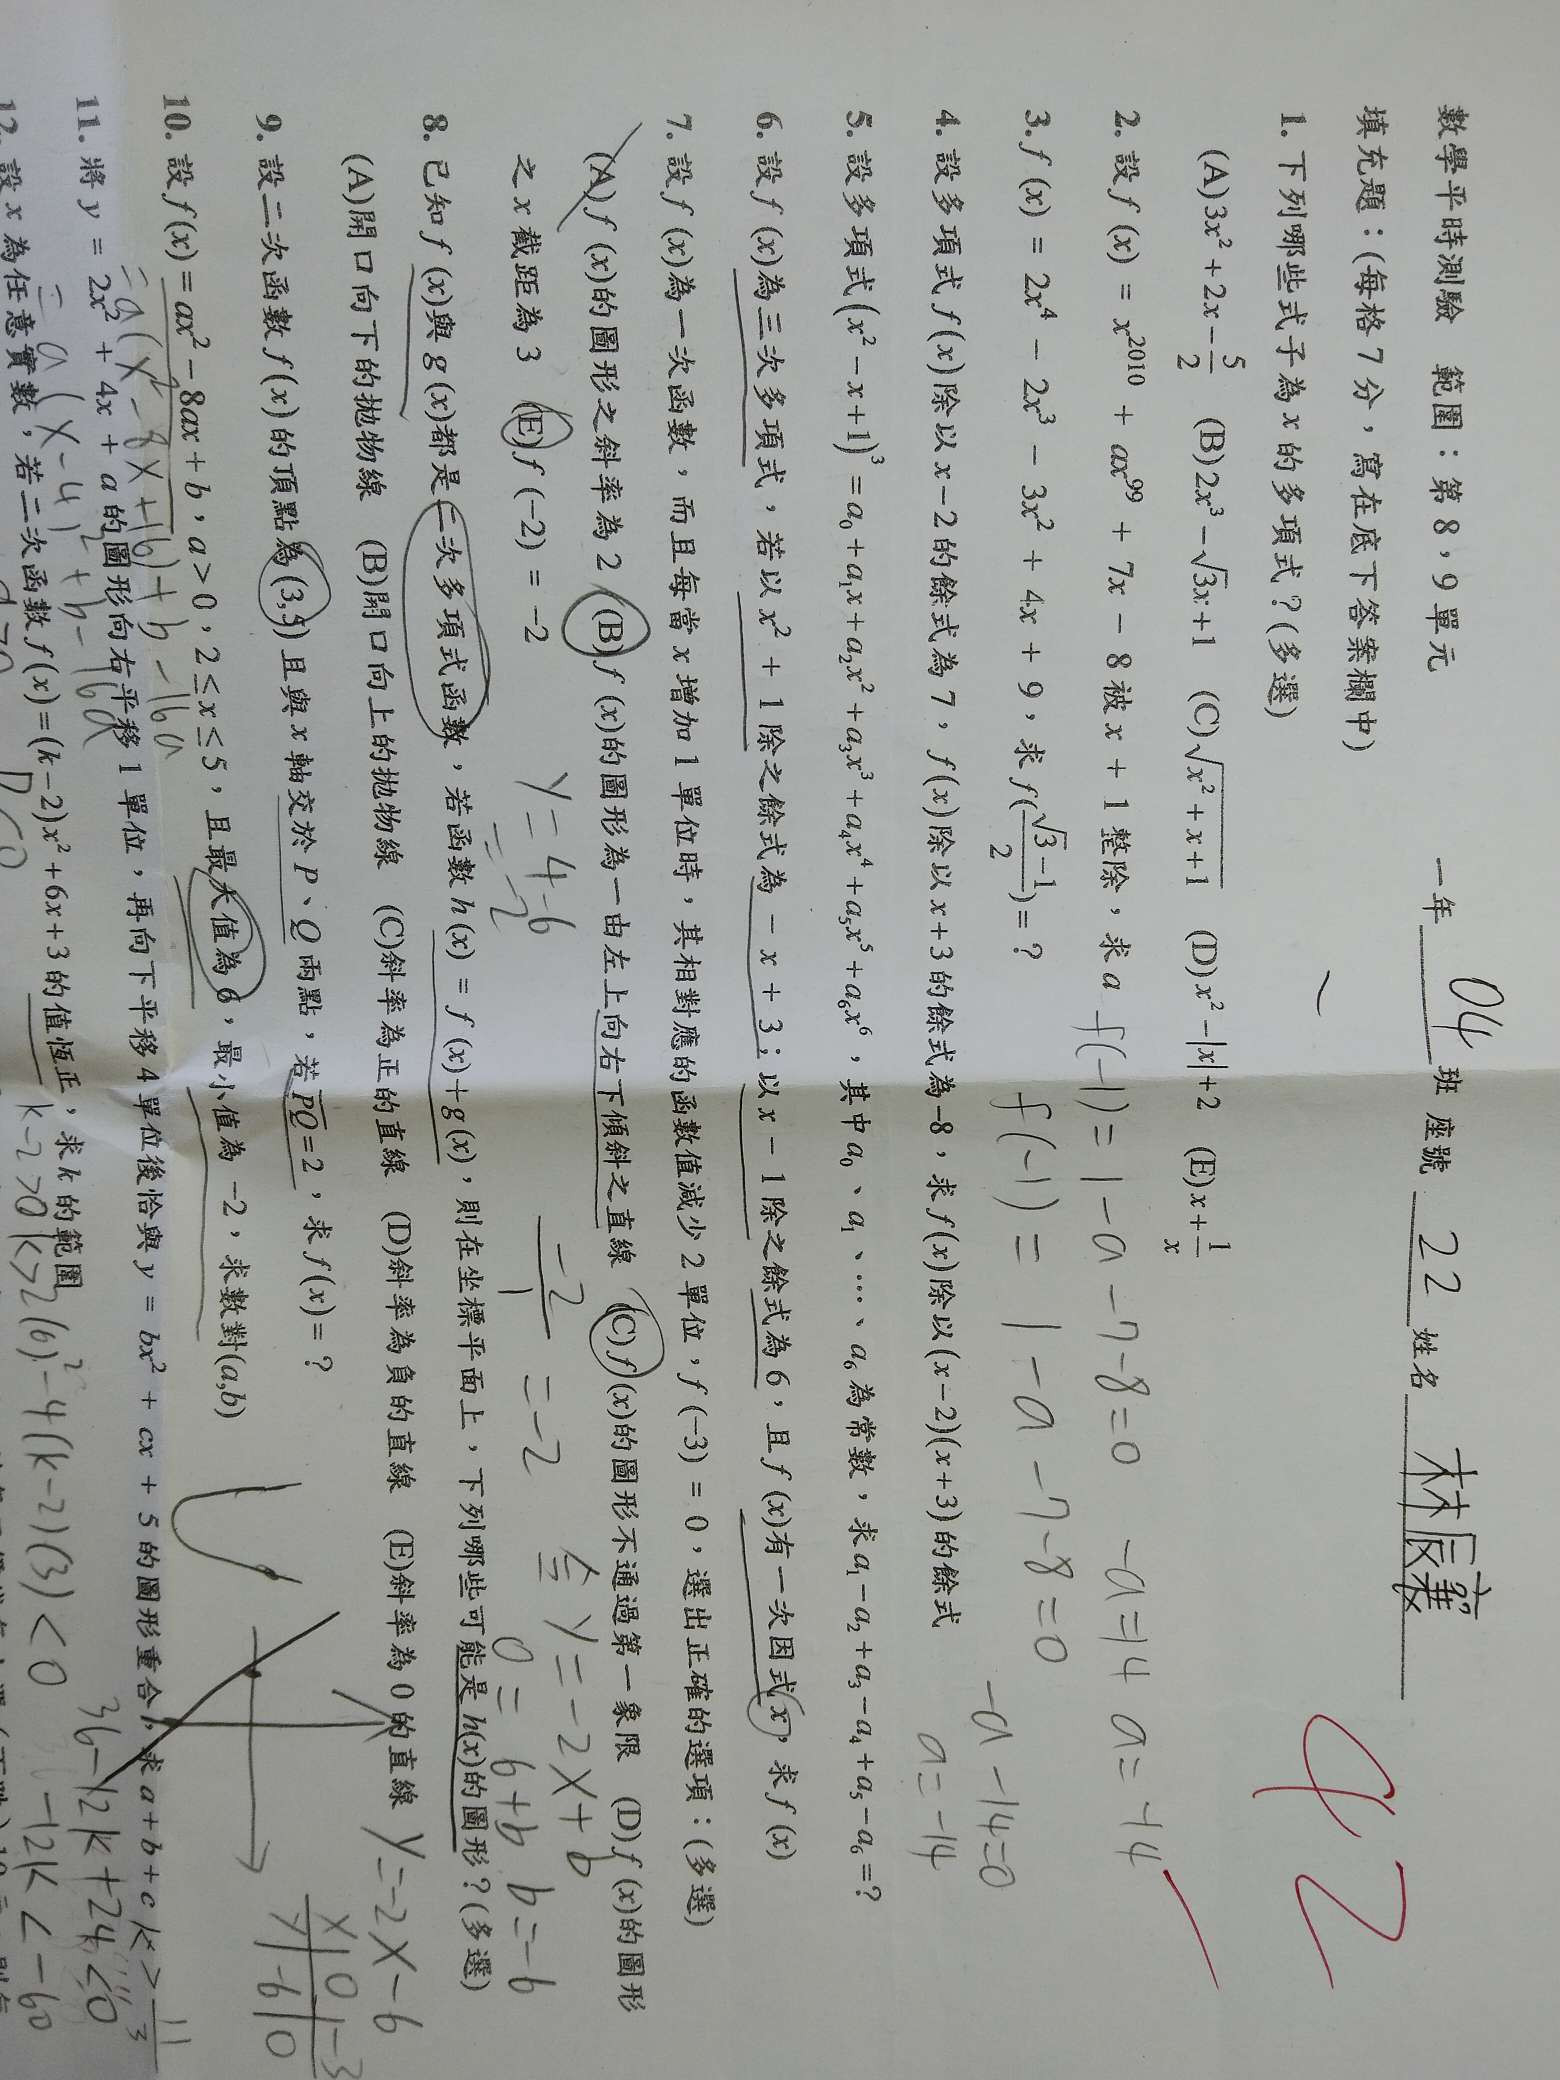 數學平時測驗　範圍：第 8，9 單元　一年 04 班 座號 22 姓名 林辰
42
填充題：(每格 7 分，寫在底下答案欄中)
1. 下列哪些式子為 x 的多項式？(多選)
(A)3x²+2x−5/2　(B)2x³−√3x+1　(C)√(x²+x+1)　(D)x²−|x|+2　(E)x+1/x
2. 設 f(x) = x²⁰¹⁰ + ax⁹⁹ + 7x − 8 被 x + 1 整除，求 a　f(-1)=1-a-7-8=0　-a=14　a=-14
3. f(x) = 2x⁴ − 2x³ − 3x² + 4x + 9，求 f((√3−1)/2) = ?　f(-1)=1-a-7-8=0　-a-14=0
a=-14
4. 設多項式 f(x)除以 x−2 的餘式為 7，f(x)除以 x+3 的餘式為−8，求 f(x)除以(x−2)(x+3)的餘式
5. 設多項式(x²−x+1)³ = a₀+a₁x+a₂x²+a₃x³+a₄x⁴+a₅x⁵+a₆x⁶，其中 a₀、a₁、…、a₆ 為常數，求 a₁−a₂+a₃−a₄+a₅−a₆=?
6. 設 f(x)為三次多項式，若以 x² + 1 除之餘式為 − x + 3；以 x − 1 除之餘式為 6，且 f(x)有一次因式 x，求 f(x)
7. 設 f(x)為一次函數，而且每當 x 增加 1 單位時，其相對應的函數值減少 2 單位，f(−3) = 0，選出正確的選項：(多選)
(A)f(x)的圖形之斜率為 2　(B)f(x)的圖形為一由左上向右下傾斜之直線　(C)f(x)的圖形不通過第一象限　(D)f(x)的圖形
之 x 截距為 3　(E)f(−2) = −2　y=4-6　-2/1 = -2　y=-2x+b
=-2　0=6+b　b=-6
8. 已知 f(x)與 g(x)都是二次多項式函數，若函數 h(x) = f(x)+g(x)，則在坐標平面上，下列哪些可能是 h(x)的圖形？(多選)
(A)開口向下的拋物線　(B)開口向上的拋物線　(C)斜率為正的直線　(D)斜率為負的直線　(E)斜率為 0 的直線　y=-2x-6
x 0 -3
y -6 0
9. 設二次函數 f(x)的頂點為(3,5)且與 x 軸交於 P、Q 兩點，若 PQ=2，求 f(x) = ?
10. 設 f(x) = ax² − 8ax + b，a > 0，2 ≤ x ≤ 5，且最大值為 6，最小值為 −2，求數對(a,b)
=a(x²-8x+16)+b-16a
11. 將 y = 2x² + 4x + a 的圖形向右平移 1 單位，再向下平移 4 單位後恰與 y = bx² + cx + 5 的圖形重合，求 a + b + c　k>11/3
=a(x-4)²+b-16a　36-12k+24<0
12. 設 x 為任意實數，若二次函數 f(x)=(k−2)x²+6x+3 的值恆正，求 k 的範圍
k-2>0　k>2　(6)²-4(k-2)(3)<0　-12k<-60